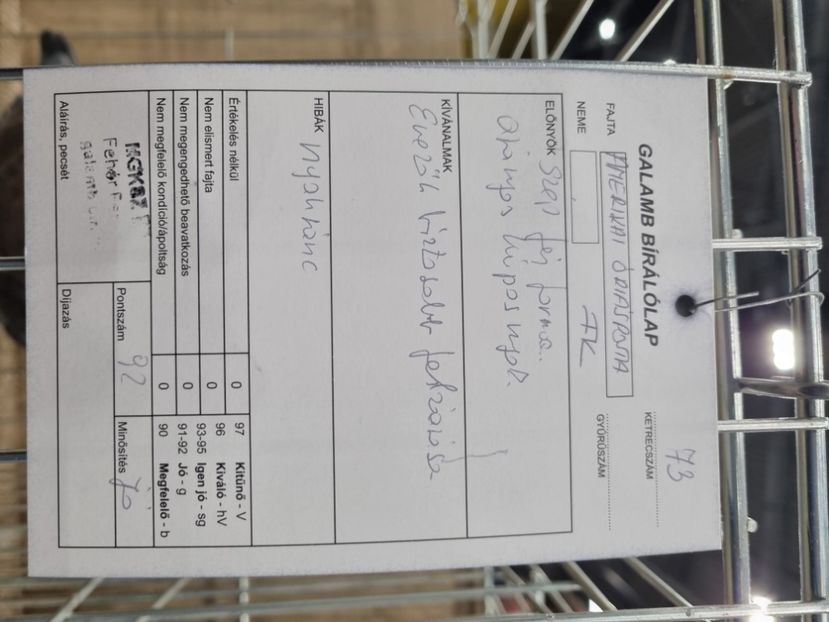 GALAMB BÍRÁLÓLAP
73
KETRECSZÁM
FAJTA AMERIKAI ÓRIÁSPOSTA
NEME FK
GYŰRŰSZÁM
ELŐNYÖK Szép fej forma.
arányos kúpos nyak.
KÍVÁNALMAK
Evezők biztosabb
HIBÁK nyakránc
Értékelés nélkül
Nem elismert fajta 0
Nem megengedhető beavatkozás 0
Nem megfelelő kondíció/ápoltság 0
0
97 Kitűnő - V
96 Kiváló - hV
93-95 Igen jó - sg
91-92 Jó - g
90 Megfelelő - b
Pontszám 92
Minősítés jó
Aláírás, pecsét
Díjazás